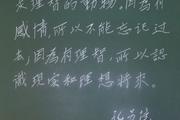 及理智的動物。因為有
感情,所以不能忘記过
去,因為有理智,所以認
識現实和理想將來。